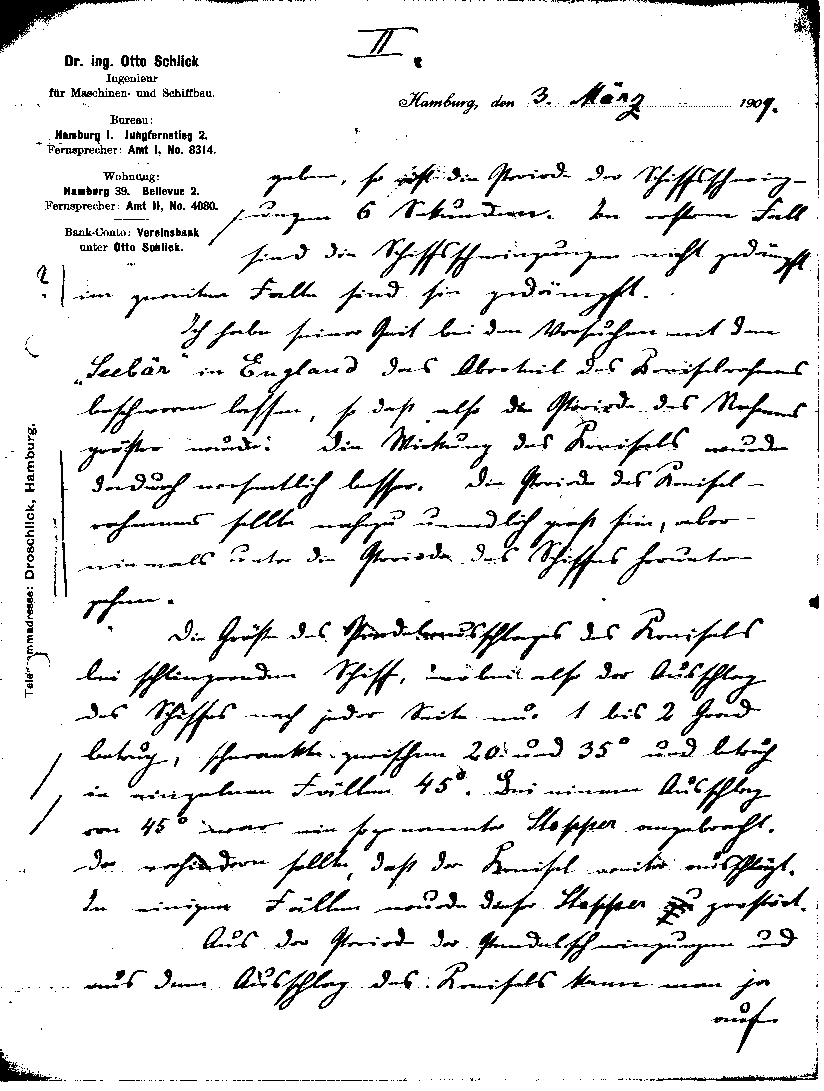 II.
Dr. ing. Otto Schlick
Ingenieur
für Maschinen- und Schiffbau.
Bureau:
Hamburg I. Jungfernstieg 2.
Fernsprecher: Amt I, No. 8314.
Wohnung:
Hamburg 39. Bellevue 2.
Fernsprecher: Amt II, No. 4080.
Bank-Conto: Vereinsbank
unter Otto Schlick.
Telegrammadresse: Droschlick, Hamburg.
Hamburg, den 3. März 1909.
geben, so ist die Periode der Schiffsschwing-
ungen 6 Sekunden. Im ersten Fall
sind die Schiffsschwingungen nicht gedämpft
? im zweiten Falle sind sie gedämpft.
Ich habe seiner Zeit bei den Versuchen mit dem
„Seebär" in England das Oberteil des Kreiselrahmens
beschweren lassen, so daß also die Periode des Rahmens
größer wurde: die Wirkung des Kreisels wurde
dadurch wesentlich besser. Die Periode des Kreisel-
rahmens sollte nahezu unendlich groß sein, aber
niemals unter die Periode des Schiffes herunter
gehen.
Die Größe des Pendelausschlages des Kreisels
bei schlingerndem Schiff, wobei also der Ausschlag
des Schiffes nach jeder Seite nur 1 bis 2 Grad
betrug, schwankte zwischen 20 und 35° und betrug
in einzelnen Fällen 45°. Bei einem Ausschlag
von 45° war ein sogenannter Stopper angebracht.
der verhindern sollte, daß der Kreisel weiter ausschlägt.
In einigen Fällen wurde dieser Stopper zerstört.
Aus der Periode der Pendelschwingungen und
aus dem Ausschlag des Kreisels kann man ja
auf